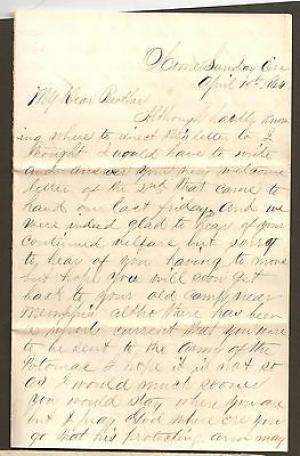 Home Sunday Eve
April 10th 1864
My Dear Brother
Although hardly know
ing where to direct this letter to I
thought I would have to write
and answer your very welcome
letter of the 2nd that came to
hand on last friday and we
were indeed glad to hear of your
continued welfare but sorry
to hear of you having to move
but hope you will soon get
back to your old camp near
Memphis altho there has been
a report current that you were
to be sent to the Army of the
Potomac I hope it is not so
as I would much sooner
you would stay where you are
but I pray God where ere you
go that his protecting arm may